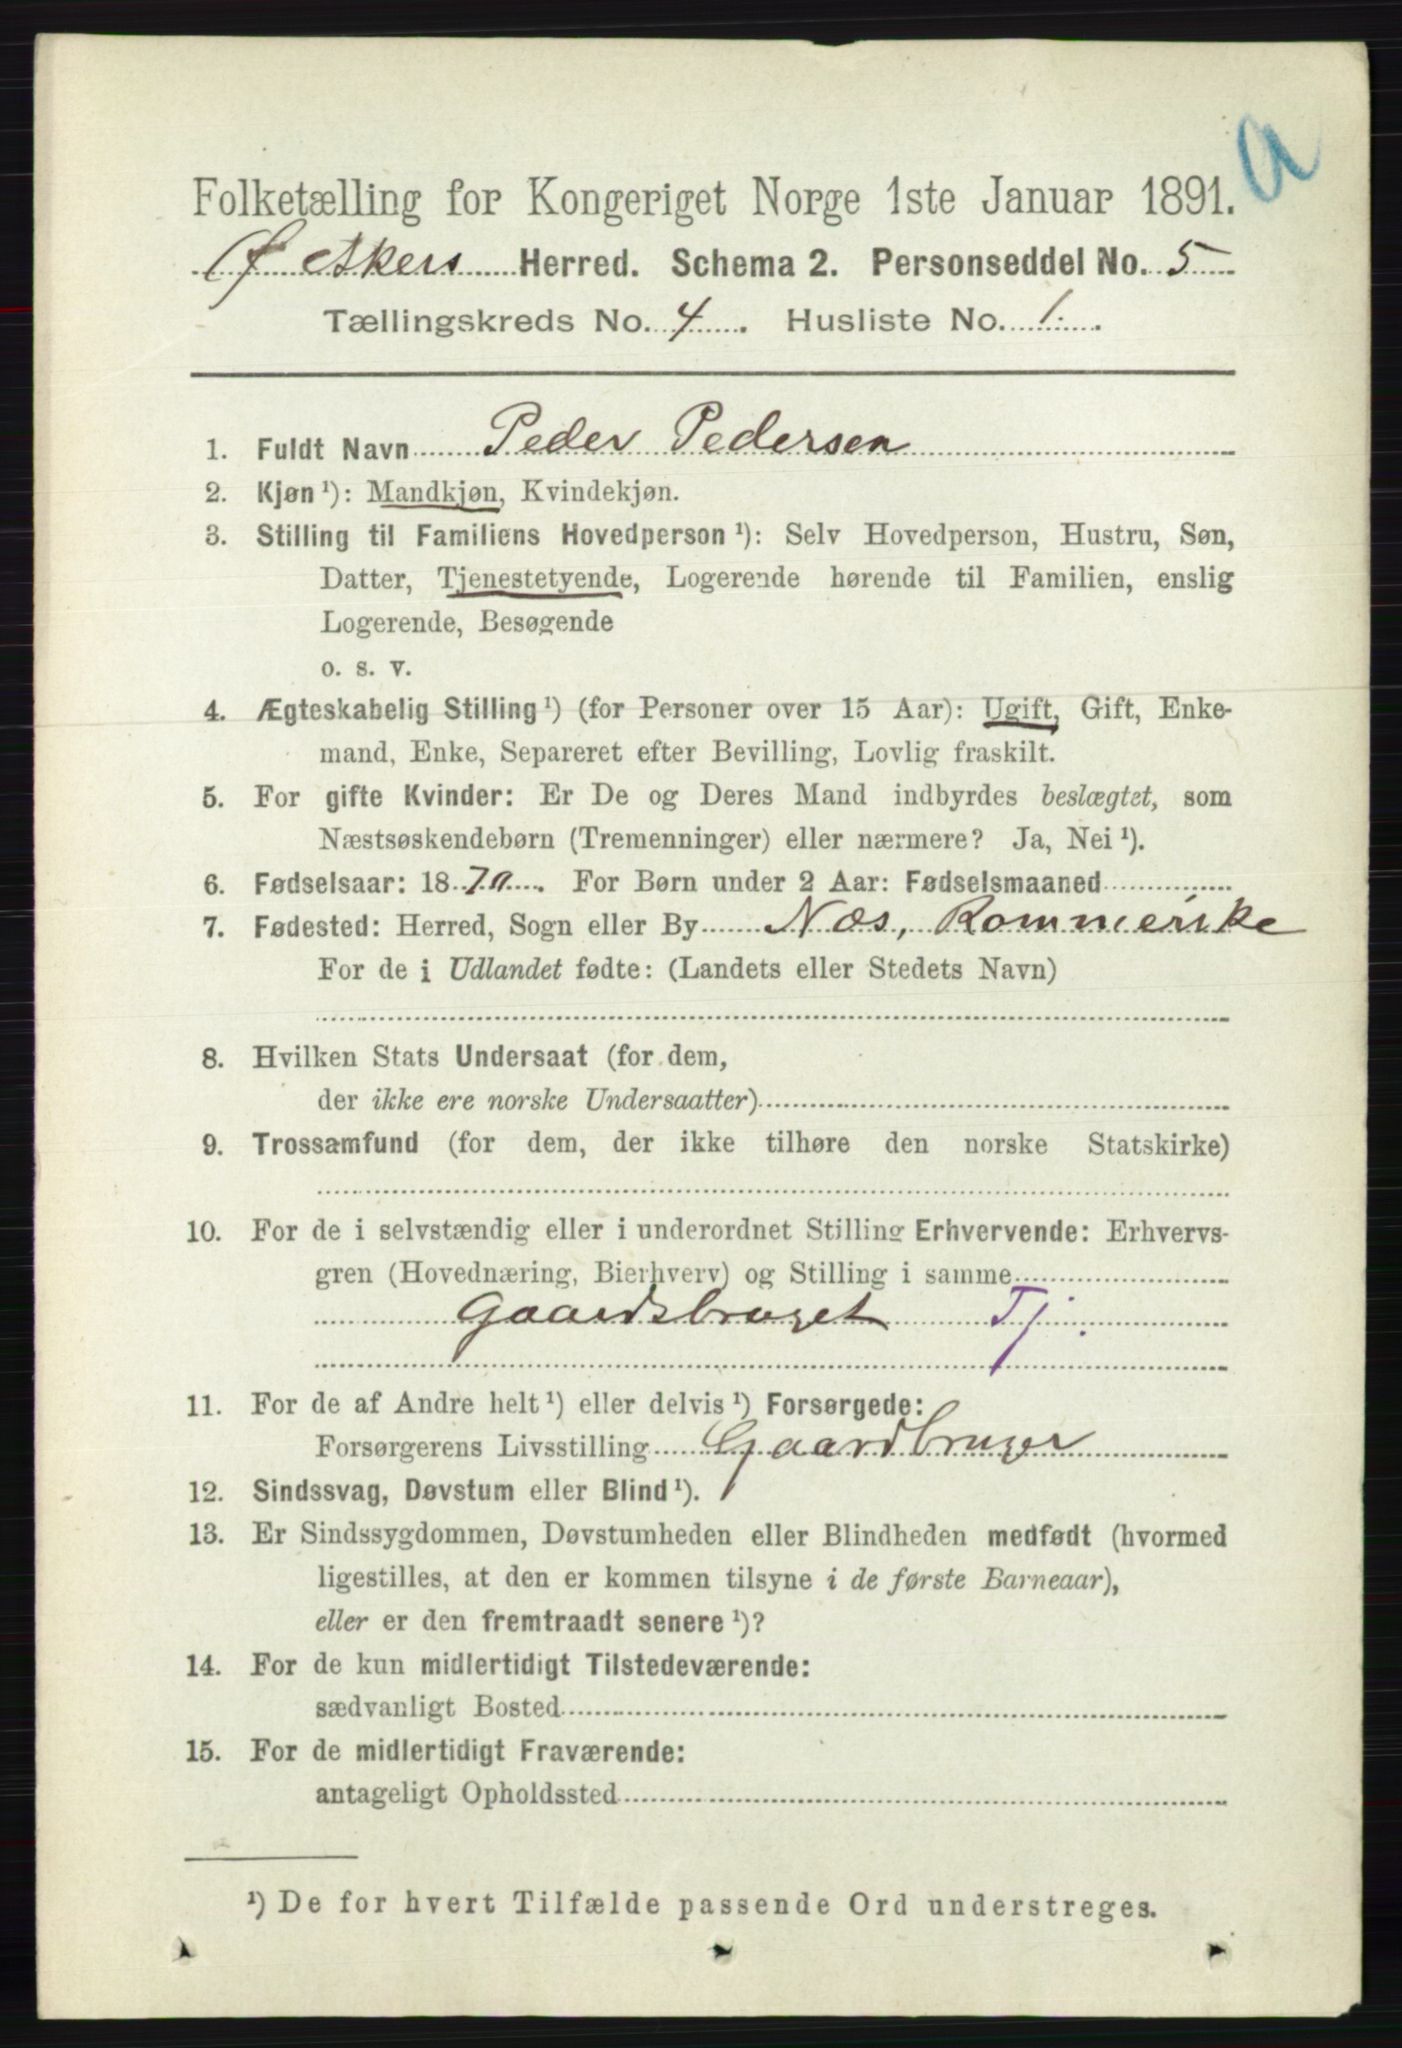 a
Folketælling for Kongeriget Norge 1ste Januar 1891.
Ø. Akers Herred. Schema 2. Personseddel No. 5
Tællingskreds No. 4. Husliste No. 1.
1. Fuldt Navn Peder Pedersen
2. Kjøn ¹): Mandkjøn, Kvindekjøn.
3. Stilling til Familiens Hovedperson ¹): Selv Hovedperson, Hustru, Søn,
Datter, Tjenestetyende, Logerende hørende til Familien, enslig
Logerende, Besøgende
o. s. v.
4. Ægteskabelig Stilling ¹) (for Personer over 15 Aar): Ugift, Gift, Enke-
mand, Enke, Separeret efter Bevilling, Lovlig fraskilt.
5. For gifte Kvinder: Er De og Deres Mand indbyrdes beslægtet, som
Næstsøskendebørn (Tremenninger) eller nærmere? Ja, Nei ¹).
6. Fødselsaar: 1870. For Børn under 2 Aar: Fødselsmaaned
7. Fødested: Herred, Sogn eller By Næs, Rommerike
For de i Udlandet fødte: (Landets eller Stedets Navn)
8. Hvilken Stats Undersaat (for dem,
der ikke ere norske Undersaatter)
9. Trossamfund (for dem, der ikke tilhøre den norske Statskirke)
10. For de i selvstændig eller i underordnet Stilling Erhvervende: Erhvervs-
gren (Hovednæring, Bierhverv) og Stilling i samme
Gaardsbruget Tj.
11. For de af Andre helt ¹) eller delvis ¹) Forsørgede:
Forsørgerens Livsstilling Gaardbruger
12. Sindssvag, Døvstum eller Blind ¹).
13. Er Sindssygdommen, Døvstumheden eller Blindheden medfødt (hvormed
ligestilles, at den er kommen tilsyne i de første Barneaar),
eller er den fremtraadt senere ¹)?
14. For de kun midlertidigt Tilstedeværende:
sædvanligt Bosted
15. For de midlertidigt Fraværende:
antageligt Opholdssted
¹) De for hvert Tilfælde passende Ord understreges.